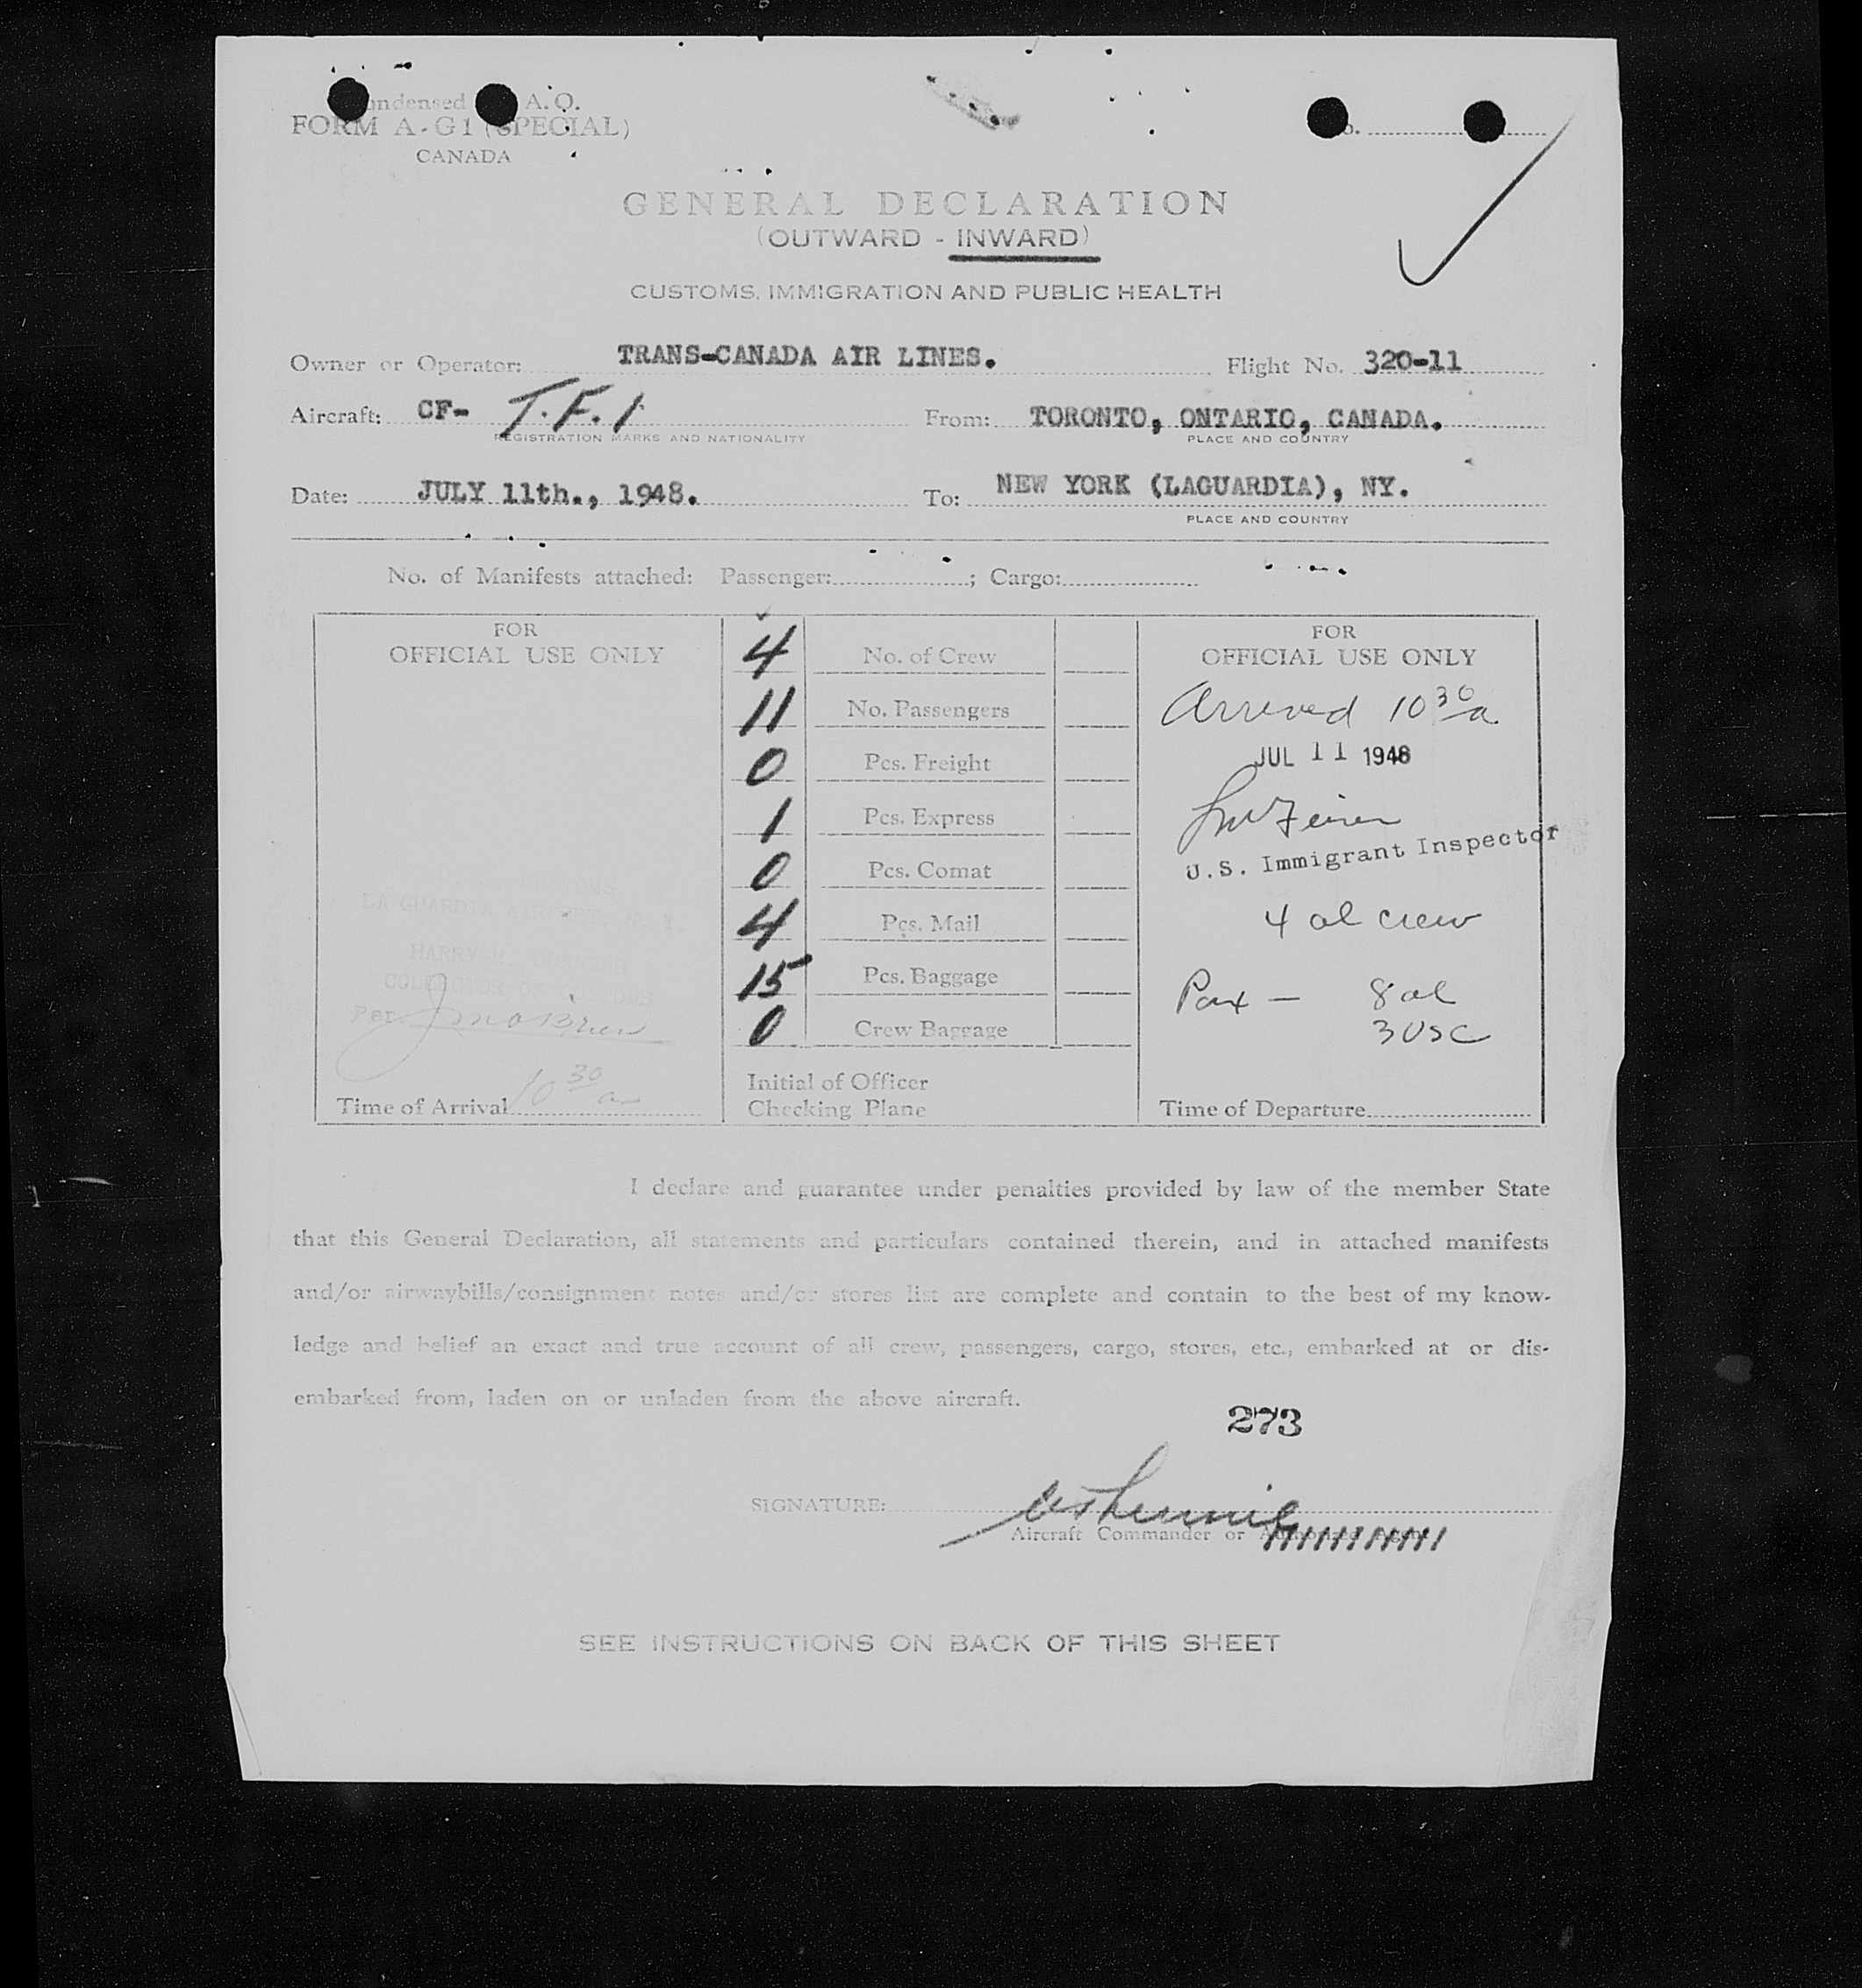 ondensed A.O.
FORM A-G1 (SPECIAL)
CANADA
GENERAL DECLARATION
(OUTWARD - INWARD)
CUSTOMS, IMMIGRATION AND PUBLIC HEALTH
Owner or Operator: TRANS-CANADA AIR LINES. Flight No. 320-11
Aircraft: CF- T.F.1 From: TORONTO, ONTARIO, CANADA.
REGISTRATION MARKS AND NATIONALITY PLACE AND COUNTRY
Date: JULY 11th., 1948. To: NEW YORK (LAGUARDIA), NY.
PLACE AND COUNTRY
No. of Manifests attached: Passenger: ; Cargo:
FOR
OFFICIAL USE ONLY
LA GUARDIA
HARRY
Per.
10 30 a
Time of Arrival
4 No. of Crew
11 No. Passengers
0 Pcs. Freight
1 Pcs. Express
0 Pcs. Comat
4 Pcs. Mail
15 Pcs. Baggage
0 Crew Baggage
Initial of Officer
Checking Plane
FOR
OFFICIAL USE ONLY
Arrived 10 30 a
JUL 11 1948
U.S. Immigrant Inspector
4 al crew
Pax — 8 al
3 USC
Time of Departure
I declare and guarantee under penalties provided by law of the member State
that this General Declaration, all statements and particulars contained therein, and in attached manifests
and/or airwaybills/consignment notes and/or stores list are complete and contain to the best of my know-
ledge and belief an exact and true account of all crew, passengers, cargo, stores, etc., embarked at or dis-
embarked from, laden on or unladen from the above aircraft.
273
SIGNATURE:
Aircraft Commander or
SEE INSTRUCTIONS ON BACK OF THIS SHEET